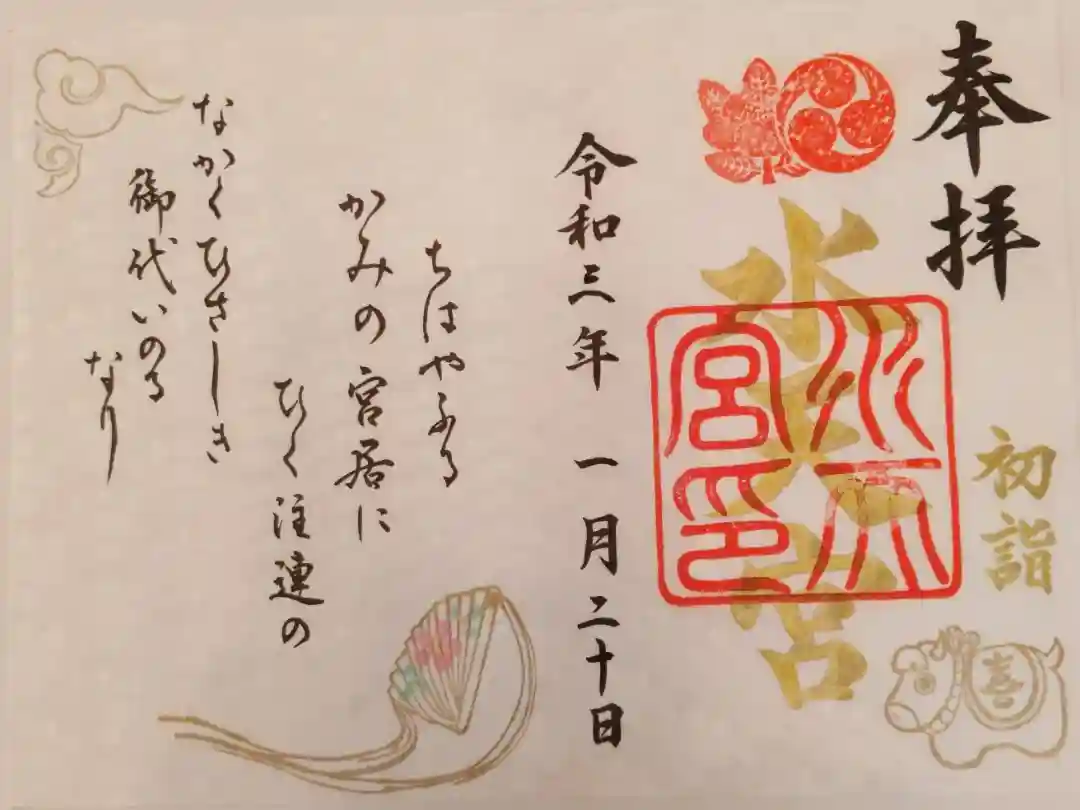 奉拝
初詣
喜
水天宮
水天宮印
令和三年 一月二十日
ちはやふる
かみの宮居に
ひく注連の
なかくひさしき
御代いのる
なり